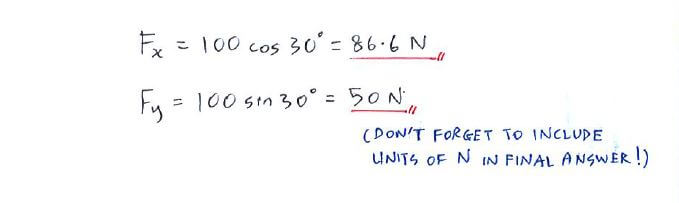 Fx = 100 cos 30° = 86.6 N
Fy = 100 sin 30° = 50 N
(DON'T FORGET TO INCLUDE
UNITS OF N IN FINAL ANSWER!)